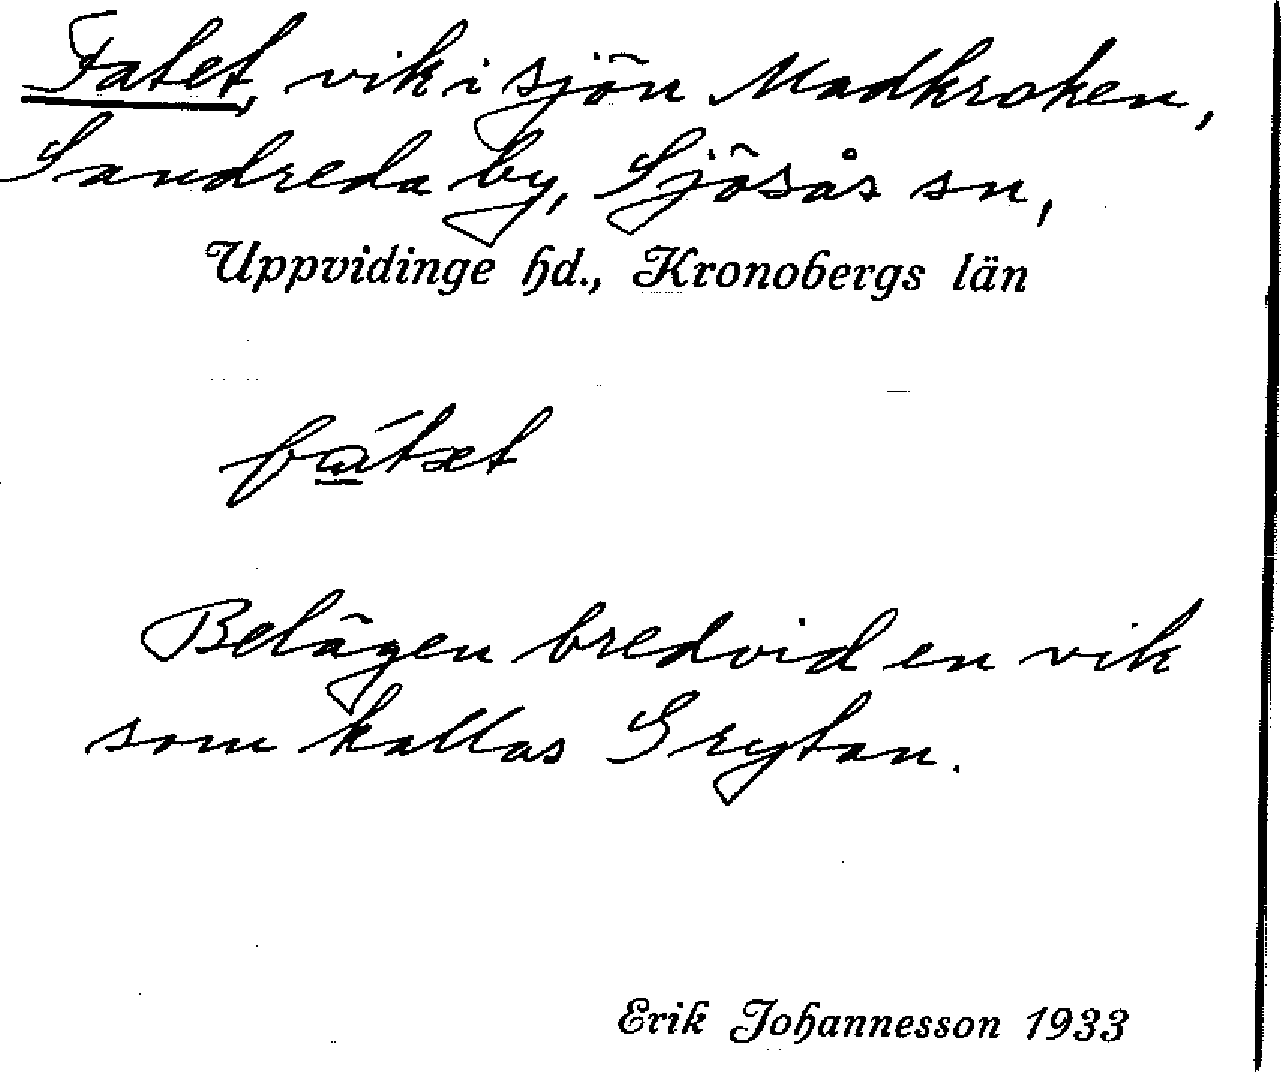 Fatet, vik i sjön Madkroken,
Sandreda by, Sjösås sn,
Uppvidinge hd., Kronobergs län
fá̲tæt
Belägen bredvid en vik
som kallas Grytan.
Erik Johannesson 1933